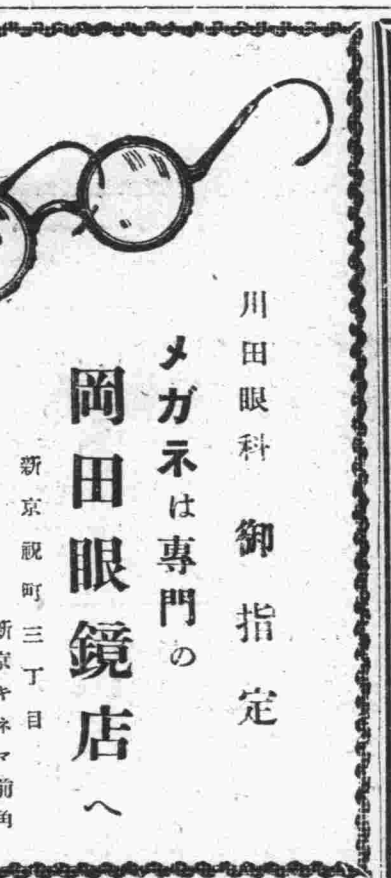 川田眼科 御指定
メガネは專門の
岡田眼鏡店へ
新京祝町三丁目
新京キネマ前角